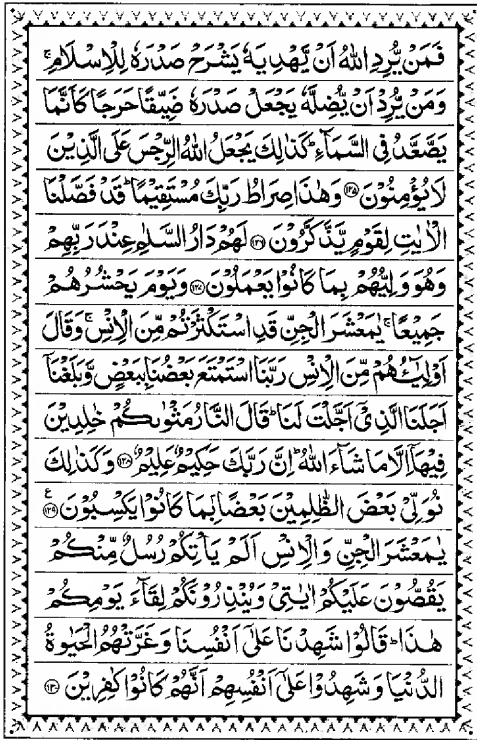 فَمَنۡ يُّرِدِ اللّٰهُ اَنۡ يَّهۡدِيَهٗ يَشۡرَحۡ صَدۡرَهٗ لِلۡاِسۡلَامِ‌ۚ
وَمَنۡ يُّرِدۡ اَنۡ يُّضِلَّهٗ يَجۡعَلۡ صَدۡرَهٗ ضَيِّقًا حَرَجًا كَاَنَّمَا
يَصَّعَّدُ فِى السَّمَآءِ‌ؕ كَذٰلِكَ يَجۡعَلُ اللّٰهُ الرِّجۡسَ عَلَى الَّذِيۡنَ
لَا يُؤۡمِنُوۡنَ ﴿۱۲۵﴾ وَهٰذَا صِرَاطُ رَبِّكَ مُسۡتَقِيۡمًا‌ؕ قَدۡ فَصَّلۡنَا
الۡاٰيٰتِ لِقَوۡمٍ يَّذَّكَّرُوۡنَ ﴿۱۲۶﴾ لَهُمۡ دَارُ السَّلٰمِ عِنۡدَ رَبِّهِمۡ
وَهُوَ وَلِيُّهُمۡ بِمَا كَانُوۡا يَعۡمَلُوۡنَ ﴿۱۲۷﴾ وَيَوۡمَ يَحۡشُرُهُمۡ
جَمِيۡعًا‌ۚ يٰمَعۡشَرَ الۡجِنِّ قَدِ اسۡتَكۡثَرۡتُمۡ مِّنَ الۡاِنۡسِ‌ۚ وَقَالَ
اَوۡلِيٰٓـئُهُمۡ مِّنَ الۡاِنۡسِ رَبَّنَا اسۡتَمۡتَعَ بَعۡضُنَا بِبَعۡضٍ وَّبَلَغۡنَاۤ
اَجَلَنَا الَّذِىۡۤ اَجَّلۡتَ لَنَا‌ؕ قَالَ النَّارُ مَثۡوٰٮكُمۡ خٰلِدِيۡنَ
فِيۡهَاۤ اِلَّا مَا شَآءَ اللّٰهُ‌ؕ اِنَّ رَبَّكَ حَكِيۡمٌ عَلِيۡمٌ ﴿۱۲۸﴾ وَكَذٰلِكَ
نُوَلِّىۡ بَعۡضَ الظّٰلِمِيۡنَ بَعۡضًۢا بِمَا كَانُوۡا يَكۡسِبُوۡنَ ﴿۱۲۹﴾ ع
يٰمَعۡشَرَ الۡجِنِّ وَالۡاِنۡسِ اَلَمۡ يَاۡتِكُمۡ رُسُلٌ مِّنۡكُمۡ
يَقُصُّوۡنَ عَلَيۡكُمۡ اٰيٰتِىۡ وَيُنۡذِرُوۡنَكُمۡ لِقَآءَ يَوۡمِكُمۡ
هٰذَا‌ؕ قَالُوۡا شَهِدۡنَا عَلٰٓى اَنۡفُسِنَا‌ وَغَرَّتۡهُمُ الۡحَيٰوةُ
الدُّنۡيَا وَشَهِدُوۡا عَلٰٓى اَنۡفُسِهِمۡ اَنَّهُمۡ كَانُوۡا كٰفِرِيۡنَ ﴿۱۳۰﴾